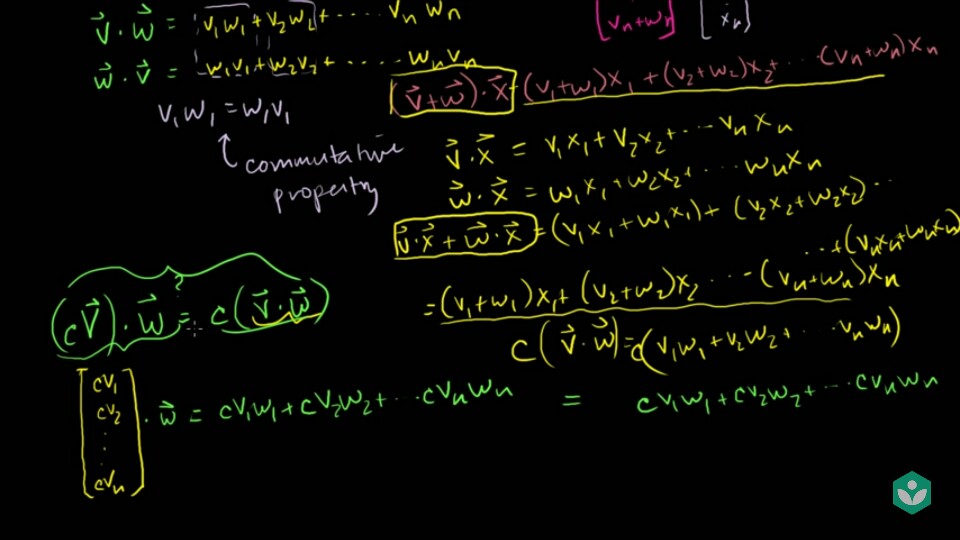 v⃗ · w⃗ = v₁w₁ + v₂w₂ + ····· vₙwₙ
w⃗ · v⃗ = w₁v₁ + w₂v₂ + ····· wₙvₙ
v₁w₁ = w₁v₁
commutative
property
[vₙ+wₙ] [xₙ]
(v⃗+w⃗)·x⃗ = (v₁+w₁)x₁ + (v₂+w₂)x₂ + ··· (vₙ+wₙ)xₙ
v⃗·x⃗ = v₁x₁ + v₂x₂ + ··· vₙxₙ
w⃗·x⃗ = w₁x₁ + w₂x₂ + ··· wₙxₙ
v⃗·x⃗ + w⃗·x⃗ = (v₁x₁ + w₁x₁) + (v₂x₂ + w₂x₂) ··
··· + (vₙxₙ + wₙxₙ)
= (v₁+w₁)x₁ + (v₂+w₂)x₂ ···· (vₙ+wₙ)xₙ
?
(cv⃗)·w⃗ = c(v⃗·w⃗)
c(v⃗·w⃗) = c(v₁w₁ + v₂w₂ + ··· vₙwₙ)
[cv₁
cv₂ · w⃗ = cv₁w₁ + cv₂w₂ + ··· cvₙwₙ = cv₁w₁ + cv₂w₂ + ··· cvₙwₙ
⋮
cvₙ]